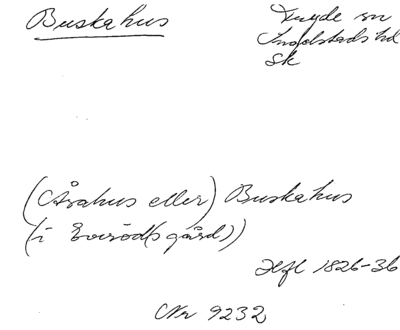 Buskahus
Tryde sn
Ingelstads hd
Sk
(Åsahus eller) Buskahus
(i Everöd(s gård))
Hfl 1826-36
Nr 9232